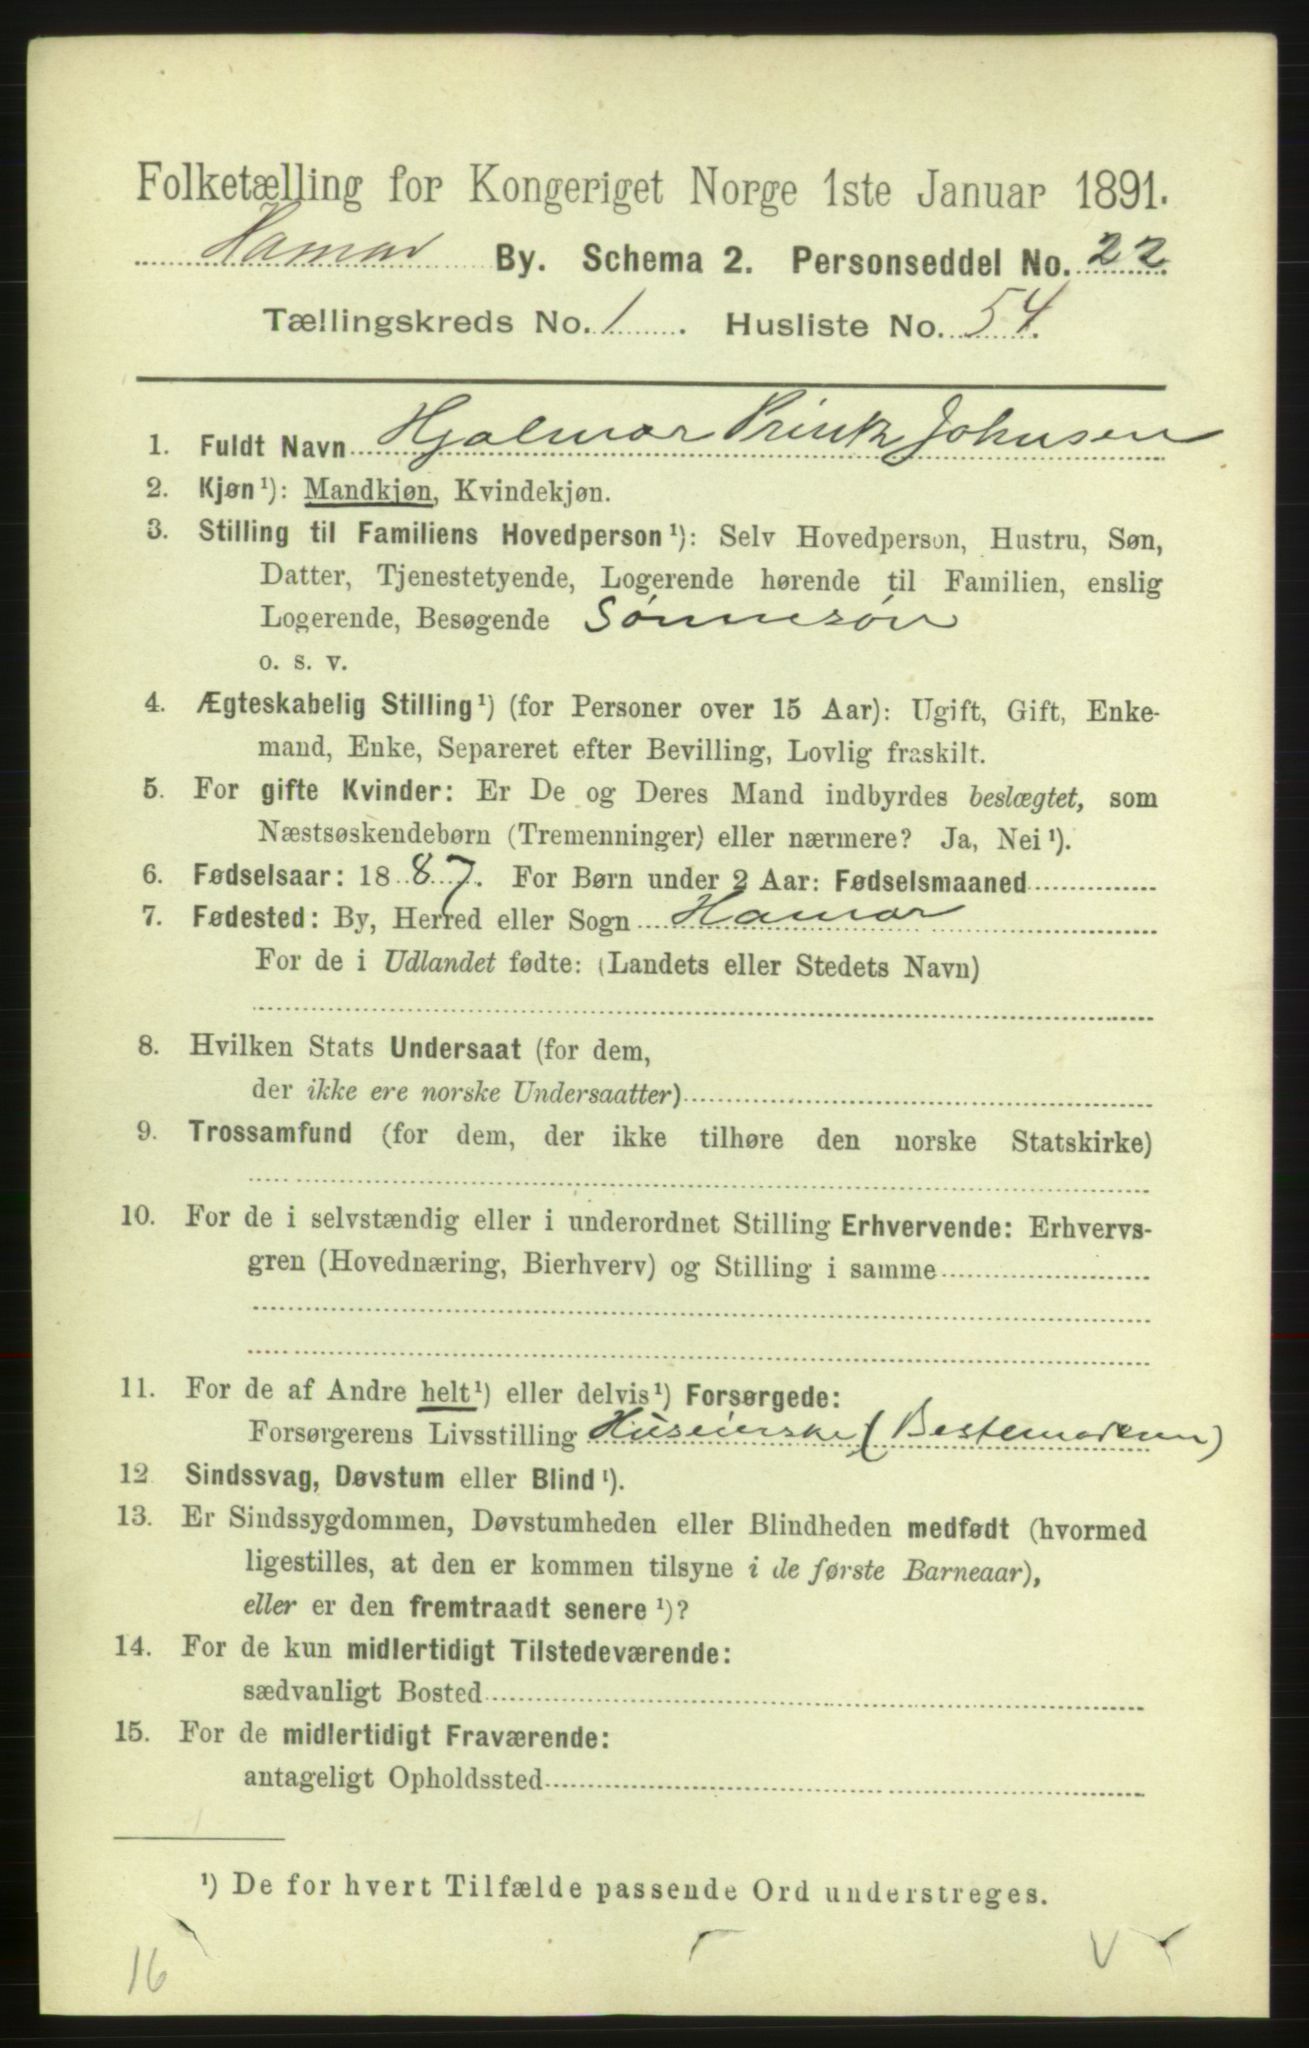 Folketælling for Kongeriget Norge 1ste Januar 1891.
Hamar By. Schema 2. Personseddel No. 22
Tællingskreds No. 1. Husliste No. 54.
1. Fuldt Navn Hjalmar Printz Johnsen
2. Kjøn¹): Mandkjøn, Kvindekjøn.
3. Stilling til Familiens Hovedperson¹): Selv Hovedperson, Hustru, Søn,
Datter, Tjenestetyende, Logerende hørende til Familien, enslig
Logerende, Besøgende Sønnesøn
o. s. v.
4. Ægteskabelig Stilling¹) (for Personer over 15 Aar): Ugift, Gift, Enke-
mand, Enke, Separeret efter Bevilling, Lovlig fraskilt.
5. For gifte Kvinder: Er De og Deres Mand indbyrdes beslægtet, som
Næstsøskendebørn (Tremenninger) eller nærmere? Ja, Nei¹).
6. Fødselsaar: 1887. For Børn under 2 Aar: Fødselsmaaned
7. Fødested: By, Herred eller Sogn Hamar
For de i Udlandet fødte: (Landets eller Stedets Navn)
8. Hvilken Stats Undersaat (for dem,
der ikke ere norske Undersaatter)
9. Trossamfund (for dem, der ikke tilhøre den norske Statskirke)
10. For de i selvstændig eller i underordnet Stilling Erhvervende: Erhvervs-
gren (Hovednæring, Bierhverv) og Stilling i samme
11. For de af Andre helt¹) eller delvis¹) Forsørgede:
Forsørgerens Livsstilling Huseierske (Bestemoderen)
12 Sindssvag, Døvstum eller Blind¹).
13. Er Sindssygdommen, Døvstumheden eller Blindheden medfødt (hvormed
ligestilles, at den er kommen tilsyne i de første Barneaar),
eller er den fremtraadt senere¹)?
14. For de kun midlertidigt Tilstedeværende:
sædvanligt Bosted
15. For de midlertidigt Fraværende:
antageligt Opholdssted
¹) De for hvert Tilfælde passende Ord understreges.
16